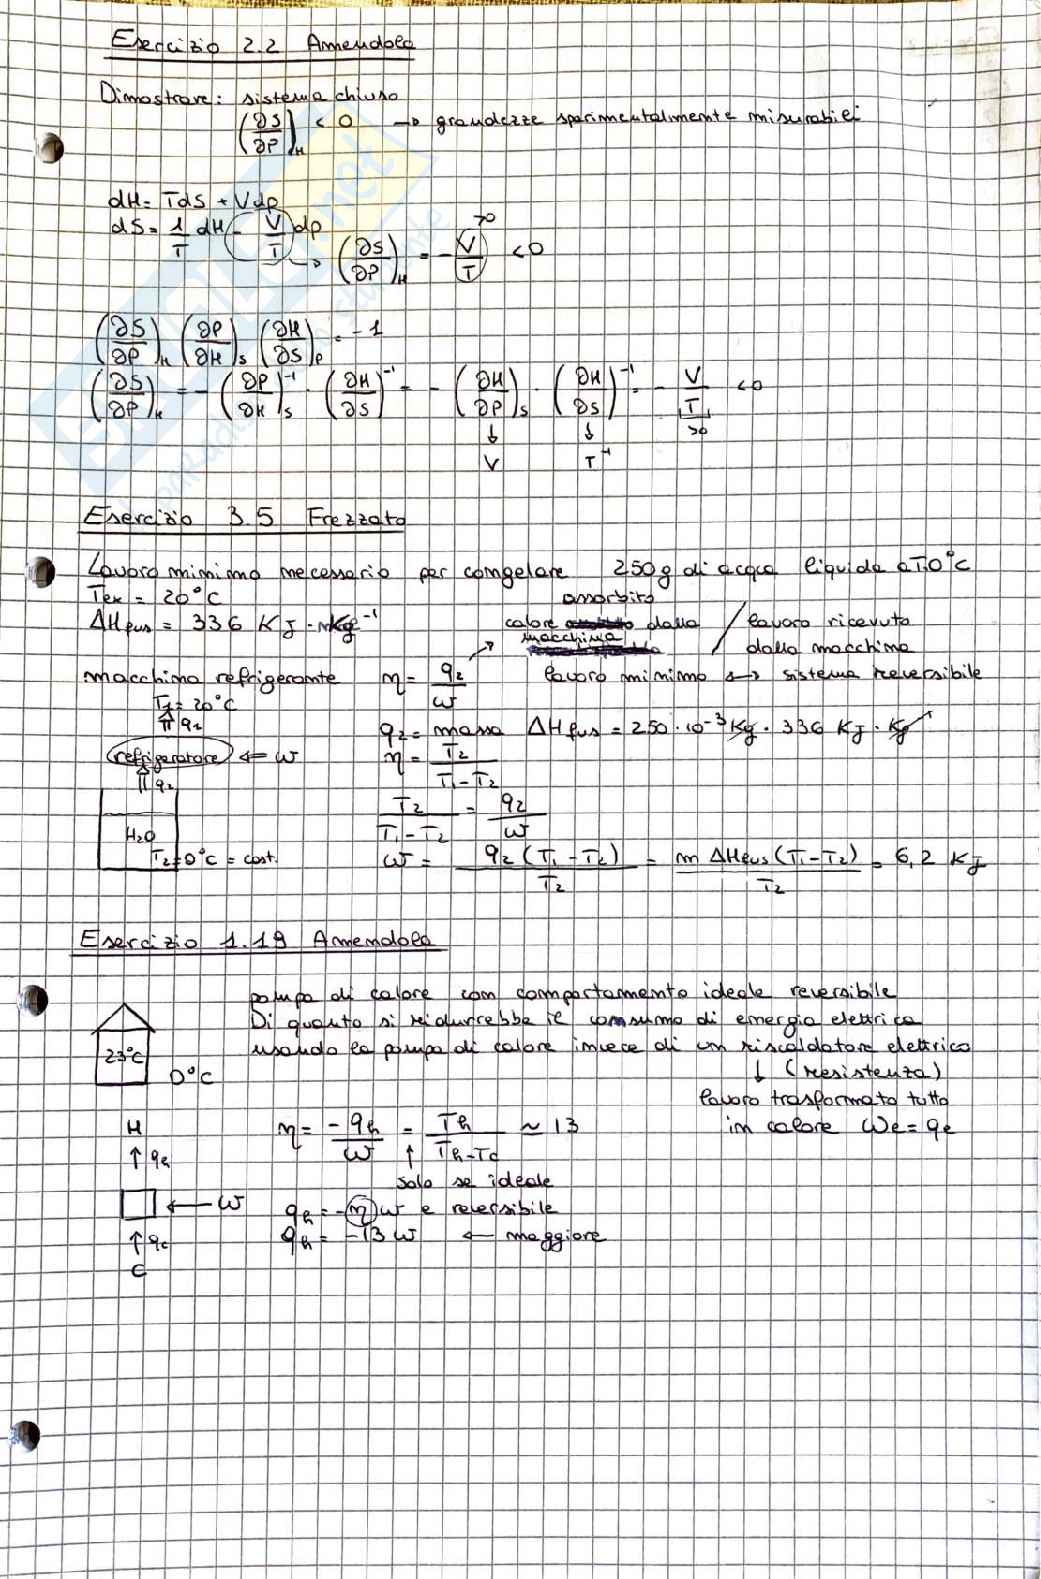 Esercizio 2.2 Amendola
Dimostrare: sistema chiuso
(∂S/∂P)_H < 0 → grandezze sperimentalmente misurabili
dH = TdS + Vdp
dS = 1/T dH - V/T dp
→ (∂S/∂P)_H = - V/T < 0
>0
(∂S/∂P)_H (∂P/∂H)_S (∂H/∂S)_P = -1
(∂S/∂P)_H = - (∂P/∂H)_S^-1 · (∂H/∂S)^-1 = - (∂H/∂P)_S · (∂H/∂S)^-1 = - V/T < 0
↓ ↓ >0
V T^-1
Esercizio 3.5 Frezzato
Lavoro minimo necessario per congelare 250g di acqua liquida a T=0°C
Tex = 20°C
ΔHfus = 336 KJ · Kg^-1
assorbito
calore dalla macchina / lavoro ricevuto dalla macchina
macchina refrigerante η = q2/w lavoro minimo ↔ sistema reversibile
T1 = 20°C
⇑ q1
q2 = massa ΔHfus = 250 · 10^-3 Kg · 336 KJ · Kg^-1
refrigeratore ⇐ w
η = T2/(T1-T2)
⇑ q2
T2/(T1-T2) = q2/w
H2O
T2 = 0°C = cost.
w = q2(T1-T2)/T2 = m ΔHfus(T1-T2)/T2 = 6,2 KJ
Esercizio 1.19 Amendola
pompa di calore con comportamento ideale reversibile
Di quanto si ridurrebbe il consumo di energia elettrica
usando la pompa di calore invece di un riscaldatore elettrico
23°C
0°C
↓ (resistenza)
lavoro trasformato tutto
in calore We = qe
H
η = -qh/w = Th/(Th-Tc) ≈ 13
↑ qh
↑
solo se ideale
e reversibile
← w
qh = -η w
qh = -13 w ← maggiore
↑ qc
C